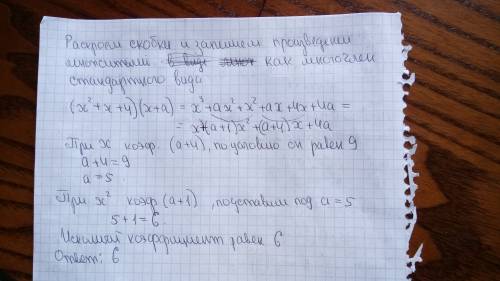 Раскроем скобки и запишем произведение
многочлена как многочлен
стандартного вида
(x²+x+4)(x+a) = x³+ax²+x²+ax+4x+4a =
= x³+(a+1)x²+(a+4)x+4a
При x коэф. (a+4), по условию он равен 9
a+4=9
a=5.
При x² коэф (a+1), подставим под a=5
5+1=6
Искомый коэффициент равен 6
Ответ: 6